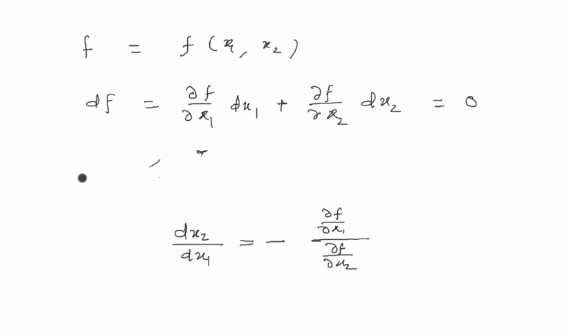 f = f(x₁, x₂)
df = ∂f/∂x₁ dx₁ + ∂f/∂x₂ dx₂ = 0
dx₂/dx₁ = − (∂f/∂x₁)/(∂f/∂x₂)